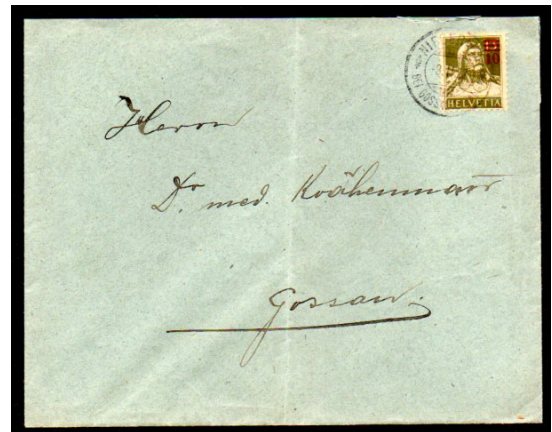 10
HELVETIA
Herrn
Dr med. Krähenmann
Gossau.